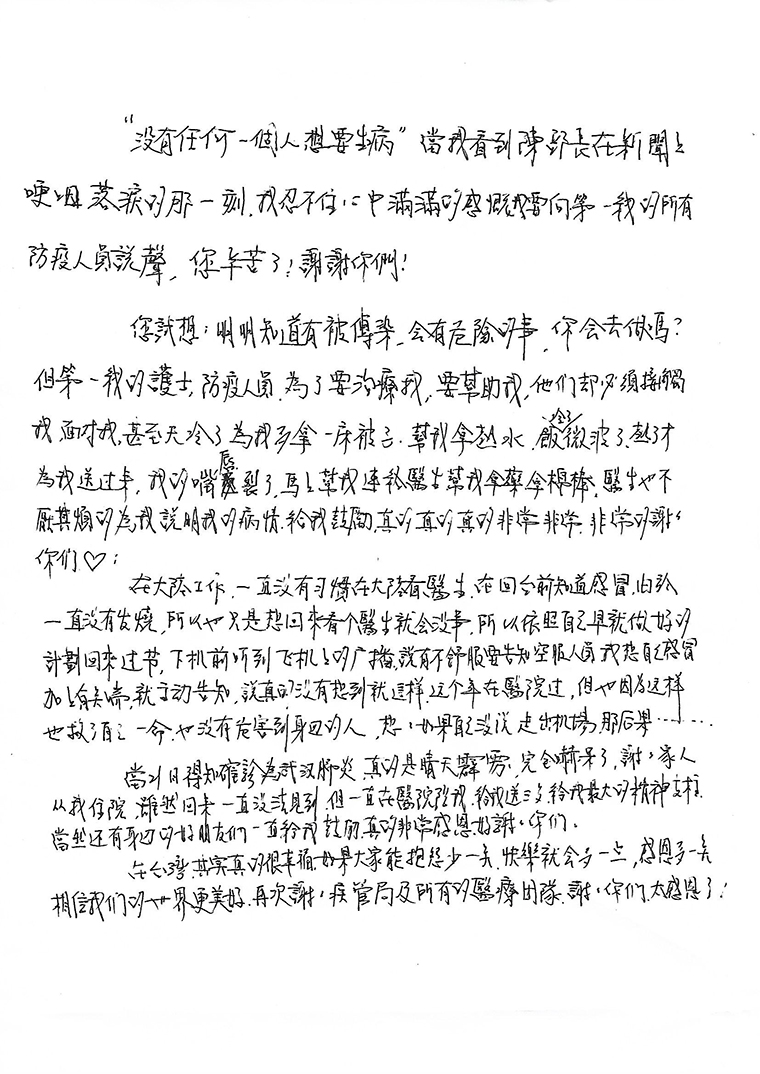 “没有任何一個人想要生病”當我看到陳部長在新聞上
哽咽落淚的那一刻,我忍不住心中滿滿的感慨我要向第一我的所有
防疫人員說聲,您辛苦了!謝謝你們!
您試想:明明知道有被傳染,会有危險的事,你会去做嗎?
但第一我的護士,防疫人員.為了要治療我,要幫助我,他们却必須接觸
我,面对我,甚至天冷了為我多拿一床被子.幫我拿热水,飯冷了微波了.热了才
為我送过来,我的嘴唇裂了,馬上幫我連絡醫生幫我拿藥拿棉棒,醫生也不
厭其煩的為我說明我的病情.给我鼓励.真的真的真的非常非常.非常的謝謝
你们♡!
在大陸工作,一直没有习慣在大陸看醫生,在回台前知道感冒,但於
一直没有发燒,所以也只是想回來看个醫生就会没事,所以依照自己早就做好的
計劃回來过节,下机前听到飞机上的广播,說有不舒服要告知空服人員我想自己感冒
加上有气喘,就主动告知,說真的没有想到就這样.这个年在醫院过,但也因為这样
也救了自己一命,也没有危害到身边的人,想想如果自己没说走出机場,那后果⋯⋯⋯
當21日得知確診為武汉肺炎,真的是晴天霹靂,完全嚇呆了,謝謝家人
从我住院,雖然回來一直没法見到.但一直在醫院陪我,给我送东西.给我最大的精神支柱.
當然还有身边的好朋友们一直给我鼓励,真的非常感恩好謝謝你们.
在台灣,其实真的很幸福.如果大家能抱怨少一点.快樂就会多一点,感恩多一点
相信我们的世界更美好.再次謝謝疾管局及所有的醫療团隊.謝謝你们.太感恩了!